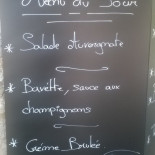 Menu du Jour
* Salade auvergnate
* Bavette, sauce aux
champignons
* Crème Brulée